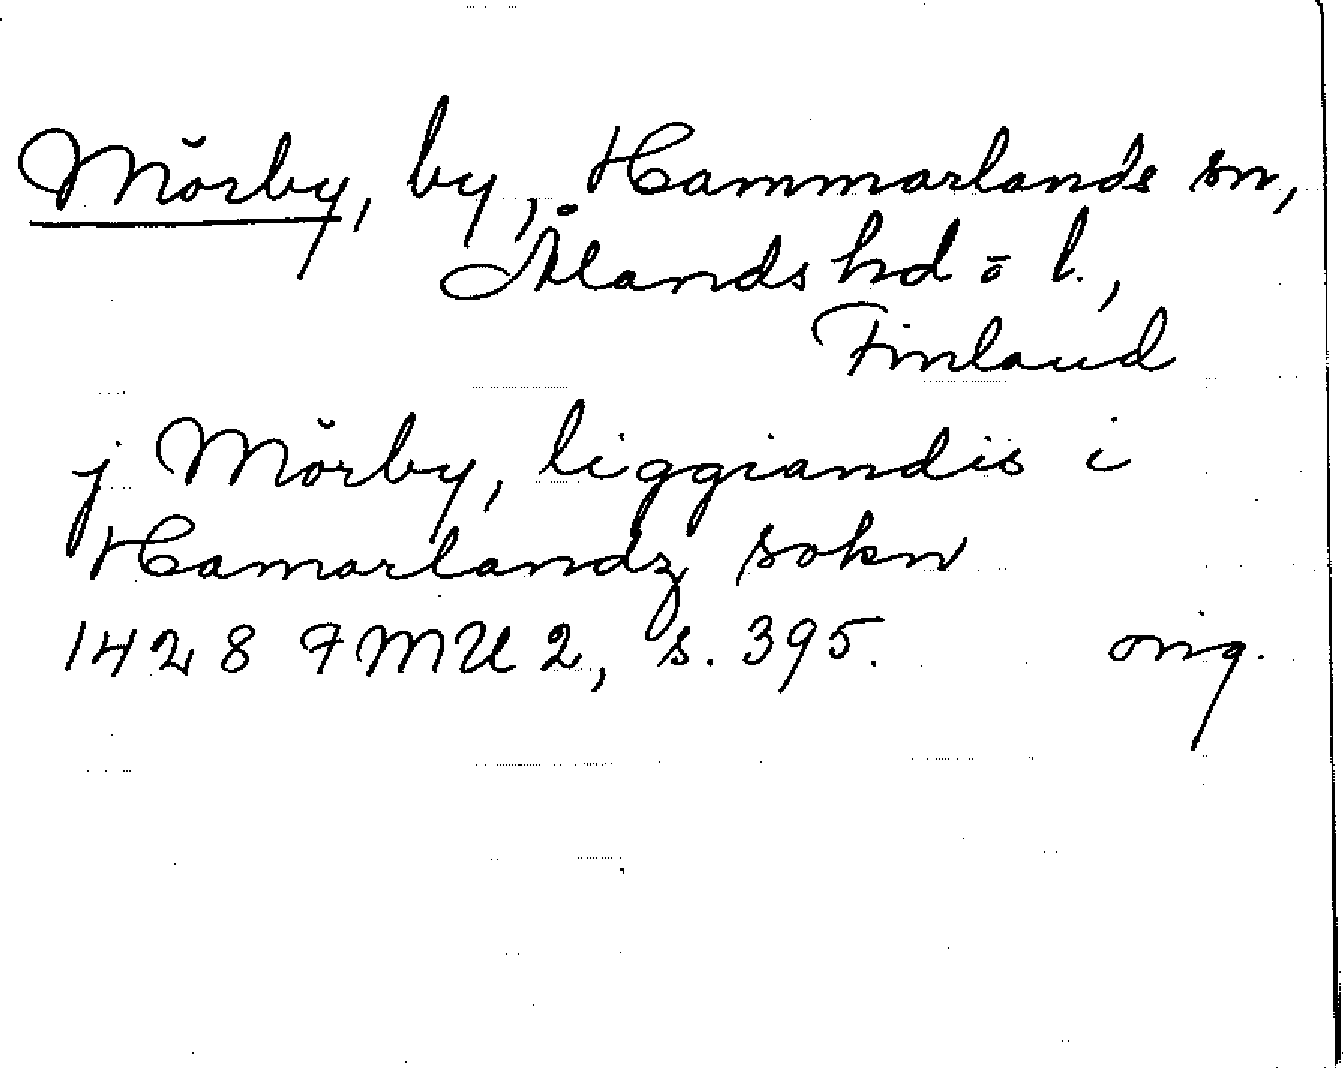 Mörby, by, Hammarlands sn,
Ålands hd o l.,
Finland
j Mörby, liggiandis i
Hamarlandz sokn
1428 FMU 2, s. 395. orig.